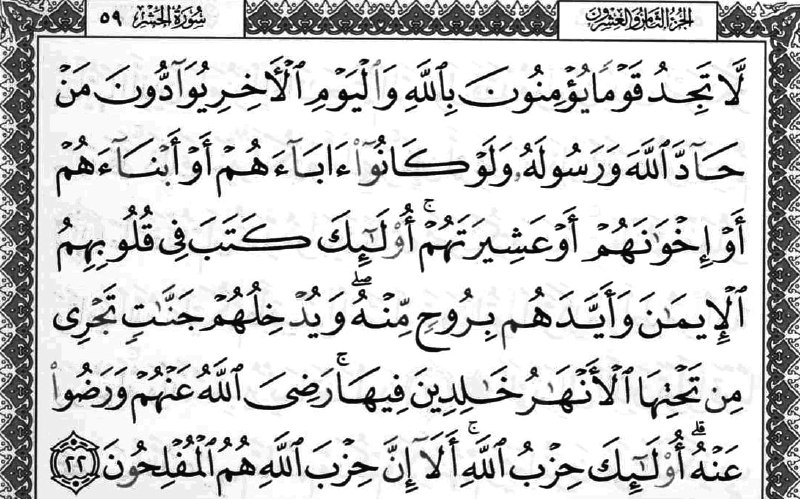 الجزء الثامن والعشرون سورة الحشر ٥٩
لَّا تَجِدُ قَوْمًا يُؤْمِنُونَ بِٱللَّهِ وَٱلْيَوْمِ ٱلْأَخِرِ يُوَآدُّونَ مَنْ
حَآدَّ ٱللَّهَ وَرَسُولَهُۥ وَلَوْ كَانُوٓا۟ ءَابَآءَهُمْ أَوْ أَبْنَآءَهُمْ
أَوْ إِخْوَٰنَهُمْ أَوْ عَشِيرَتَهُمْ ۚ أُو۟لَٰٓئِكَ كَتَبَ فِى قُلُوبِهِمُ
ٱلْإِيمَٰنَ وَأَيَّدَهُم بِرُوحٍ مِّنْهُ ۖ وَيُدْخِلُهُمْ جَنَّٰتٍ تَجْرِى
مِن تَحْتِهَا ٱلْأَنْهَٰرُ خَٰلِدِينَ فِيهَا ۚ رَضِىَ ٱللَّهُ عَنْهُمْ وَرَضُوا۟
عَنْهُ ۚ أُو۟لَٰٓئِكَ حِزْبُ ٱللَّهِ ۚ أَلَآ إِنَّ حِزْبَ ٱللَّهِ هُمُ ٱلْمُفْلِحُونَ ٢٢